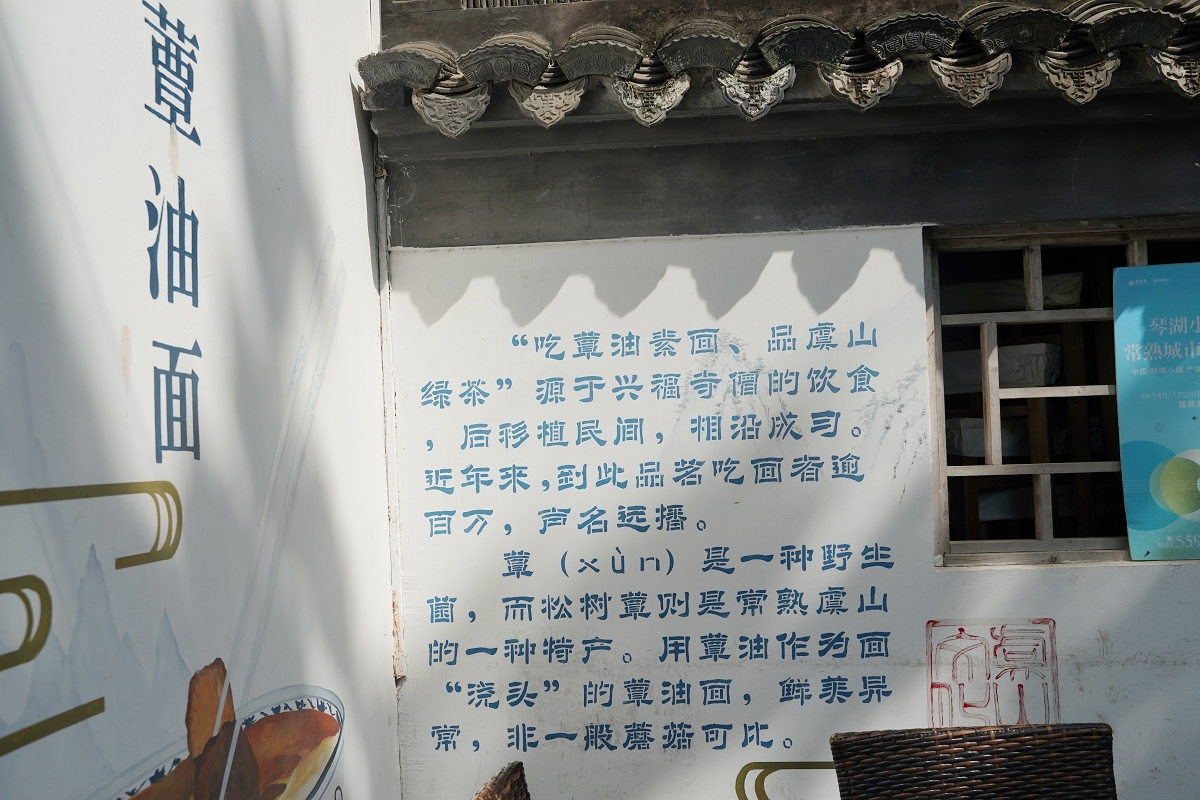 蕈油面
“吃蕈油素面、品虞山
绿茶”源于兴福寺僧的饮食
，后移植民间，相沿成习。
近年来,到此品茗吃面者逾
百万，声名远播。
蕈（xùn）是一种野生
菌，而松树蕈则是常熟虞山
的一种特产。用蕈油作为面
“浇头”的蕈油面，鲜美异
常，非一般蘑菇可比。
琴湖小
常熟城市